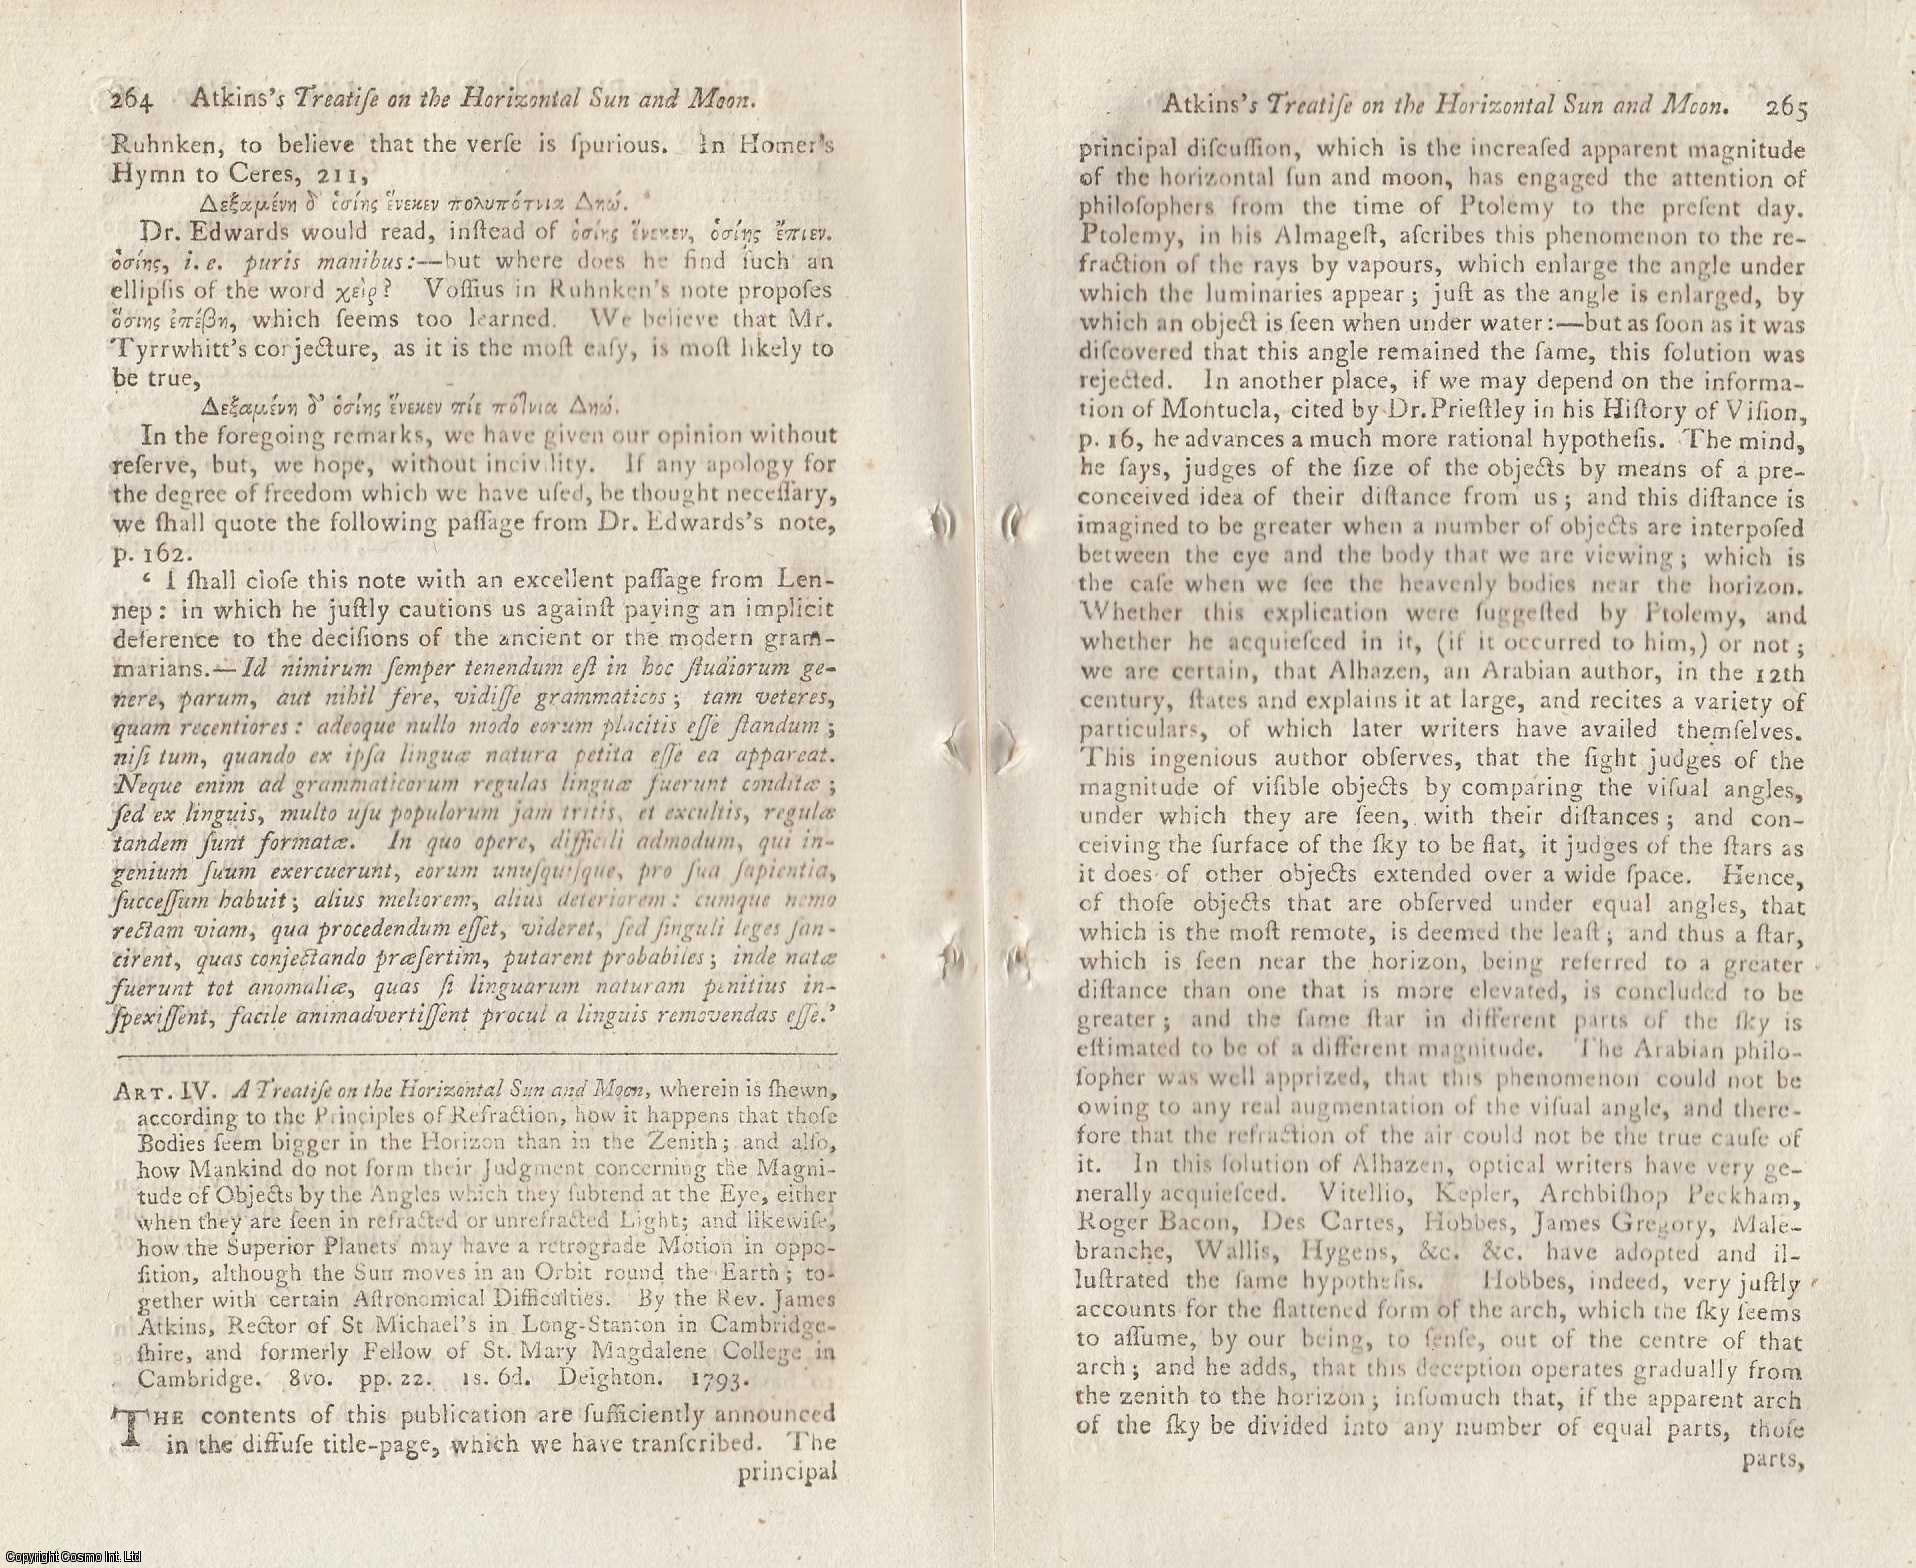 264 Atkins's Treatiſe on the Horizontal Sun and Moon.
Ruhnken, to believe that the verſe is ſpurious. In Homer's
Hymn to Ceres, 211,
Δεξαμένη δ' ὁσίης ἕνεκεν πολυπότνια Δηώ.
Dr. Edwards would read, inſtead of ὁσίης ἕνεκεν, ὁσίης ἔπιεν.
ὁσίης, i. e. puris manibus:—but where does he find ſuch an
ellipſis of the word χεὶρ? Voſſius in Ruhnken's note propoſes
ὅσιης ἐπέβη, which ſeems too learned. We believe that Mr.
Tyrrwhitt's corjecture, as it is the moſt eaſy, is moſt likely to
be true,
Δεξαμένη δ' ὁσίης ἕνεκεν πίε πότνια Δηώ.
In the foregoing remarks, we have given our opinion without
reſerve, but, we hope, without incivility. If any apology for
the degree of freedom which we have uſed, be thought neceſſary,
we ſhall quote the following paſſage from Dr. Edwards's note,
p. 162.
‘ I ſhall cloſe this note with an excellent paſſage from Len-
nep: in which he juſtly cautions us againſt paying an implicit
deference to the deciſions of the ancient or the modern gram-
marians.—Id nimirum ſemper tenendum eſt in hoc ſtudiorum ge-
nere, parum, aut nihil fere, vidiſſe grammaticos; tam veteres,
quam recentiores: adeoque nullo modo eorum placitis eſſe ſtandum;
niſi tum, quando ex ipſa linguæ natura petita eſſe ea appareat.
Neque enim ad grammaticorum regulas linguæ fuerunt conditæ;
ſed ex linguis, multo uſu populorum jam tritis, et excultis, regulæ
tandem ſunt formatæ. In quo opere, difficili admodum, qui in-
genium ſuum exercuerunt, eorum unuſquiſque, pro ſua ſapientia,
ſucceſſum habuit; alius meliorem, alius deteriorem: cumque nemo
rectam viam, qua procedendum eſſet, videret, ſed ſinguli leges ſan-
cirent, quas conjectando præſertim, putarent probabiles; inde natæ
fuerunt tot anomaliæ, quas ſi linguarum naturam penitius in-
ſpexiſſent, facile animadvertiſſent procul a linguis removendas eſſe.’
ART. IV. A Treatiſe on the Horizontal Sun and Moon, wherein is ſhewn,
according to the Principles of Refraction, how it happens that thoſe
Bodies ſeem bigger in the Horizon than in the Zenith; and alſo,
how Mankind do not form their Judgment concerning the Magni-
tude of Objects by the Angles which they ſubtend at the Eye, either
when they are ſeen in refracted or unrefracted Light; and likewiſe,
how the Superior Planets may have a retrograde Motion in oppo-
ſition, although the Sun moves in an Orbit round the Earth; to-
gether with certain Aſtronomical Difficulties. By the Rev. James
Atkins, Rector of St Michael's in Long-Stanton in Cambridge-
ſhire, and formerly Fellow of St. Mary Magdalene College in
Cambridge. 8vo. pp. 22. 1s. 6d. Deighton. 1793.
THE contents of this publication are ſufficiently announced
in the diffuſe title-page, which we have tranſcribed. The
principal
Atkins's Treatiſe on the Horizontal Sun and Moon. 265
principal diſcuſſion, which is the increaſed apparent magnitude
of the horizontal ſun and moon, has engaged the attention of
philoſophers from the time of Ptolemy to the preſent day.
Ptolemy, in his Almageſt, aſcribes this phenomenon to the re-
fraction of the rays by vapours, which enlarge the angle under
which the luminaries appear; juſt as the angle is enlarged, by
which an object is ſeen when under water:—but as ſoon as it was
diſcovered that this angle remained the ſame, this ſolution was
rejected. In another place, if we may depend on the informa-
tion of Montucla, cited by Dr. Prieſtley in his Hiſtory of Viſion,
p. 16, he advances a much more rational hypotheſis. The mind,
he ſays, judges of the ſize of the objects by means of a pre-
conceived idea of their diſtance from us; and this diſtance is
imagined to be greater when a number of objects are interpoſed
between the eye and the body that we are viewing; which is
the caſe when we ſee the heavenly bodies near the horizon.
Whether this explication were ſuggeſted by Ptolemy, and
whether he acquieſced in it, (if it occurred to him,) or not;
we are certain, that Alhazen, an Arabian author, in the 12th
century, ſtates and explains it at large, and recites a variety of
particulars, of which later writers have availed themſelves.
This ingenious author obſerves, that the ſight judges of the
magnitude of viſible objects by comparing the viſual angles,
under which they are ſeen, with their diſtances; and con-
ceiving the ſurface of the ſky to be flat, it judges of the ſtars as
it does of other objects extended over a wide ſpace. Hence,
of thoſe objects that are obſerved under equal angles, that
which is the moſt remote, is deemed the leaſt; and thus a ſtar,
which is ſeen near the horizon, being referred to a greater
diſtance than one that is more elevated, is concluded to be
greater; and the ſame ſtar in different parts of the ſky is
eſtimated to be of a different magnitude. The Arabian philo-
ſopher was well apprized, that this phenomenon could not be
owing to any real augmentation of the viſual angle, and there-
fore that the refraction of the air could not be the true cauſe of
it. In this ſolution of Alhazen, optical writers have very ge-
nerally acquieſced. Vitellio, Kepler, Archbiſhop Peckham,
Roger Bacon, Des Cartes, Hobbes, James Gregory, Male-
branche, Wallis, Hygens, &c. &c. have adopted and il-
luſtrated the ſame hypotheſis. Hobbes, indeed, very juſtly
accounts for the flattened form of the arch, which the ſky ſeems
to aſſume, by our being, to ſenſe, out of the centre of that
arch; and he adds, that this deception operates gradually from
the zenith to the horizon; inſomuch that, if the apparent arch
of the ſky be divided into any number of equal parts, thoſe
parts,
Copyright Cosmo Int. Ltd